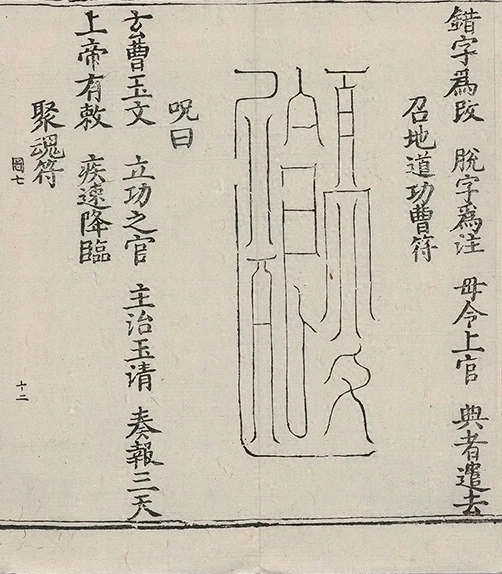 錯字為改 脫字為注 毋令上官 典者遣去
召地道功曹符
呪曰
玄曹玉文 立功之官 主治玉清 奏報三天
上帝有敕 疾速降臨
聚魂符
圖七
十二